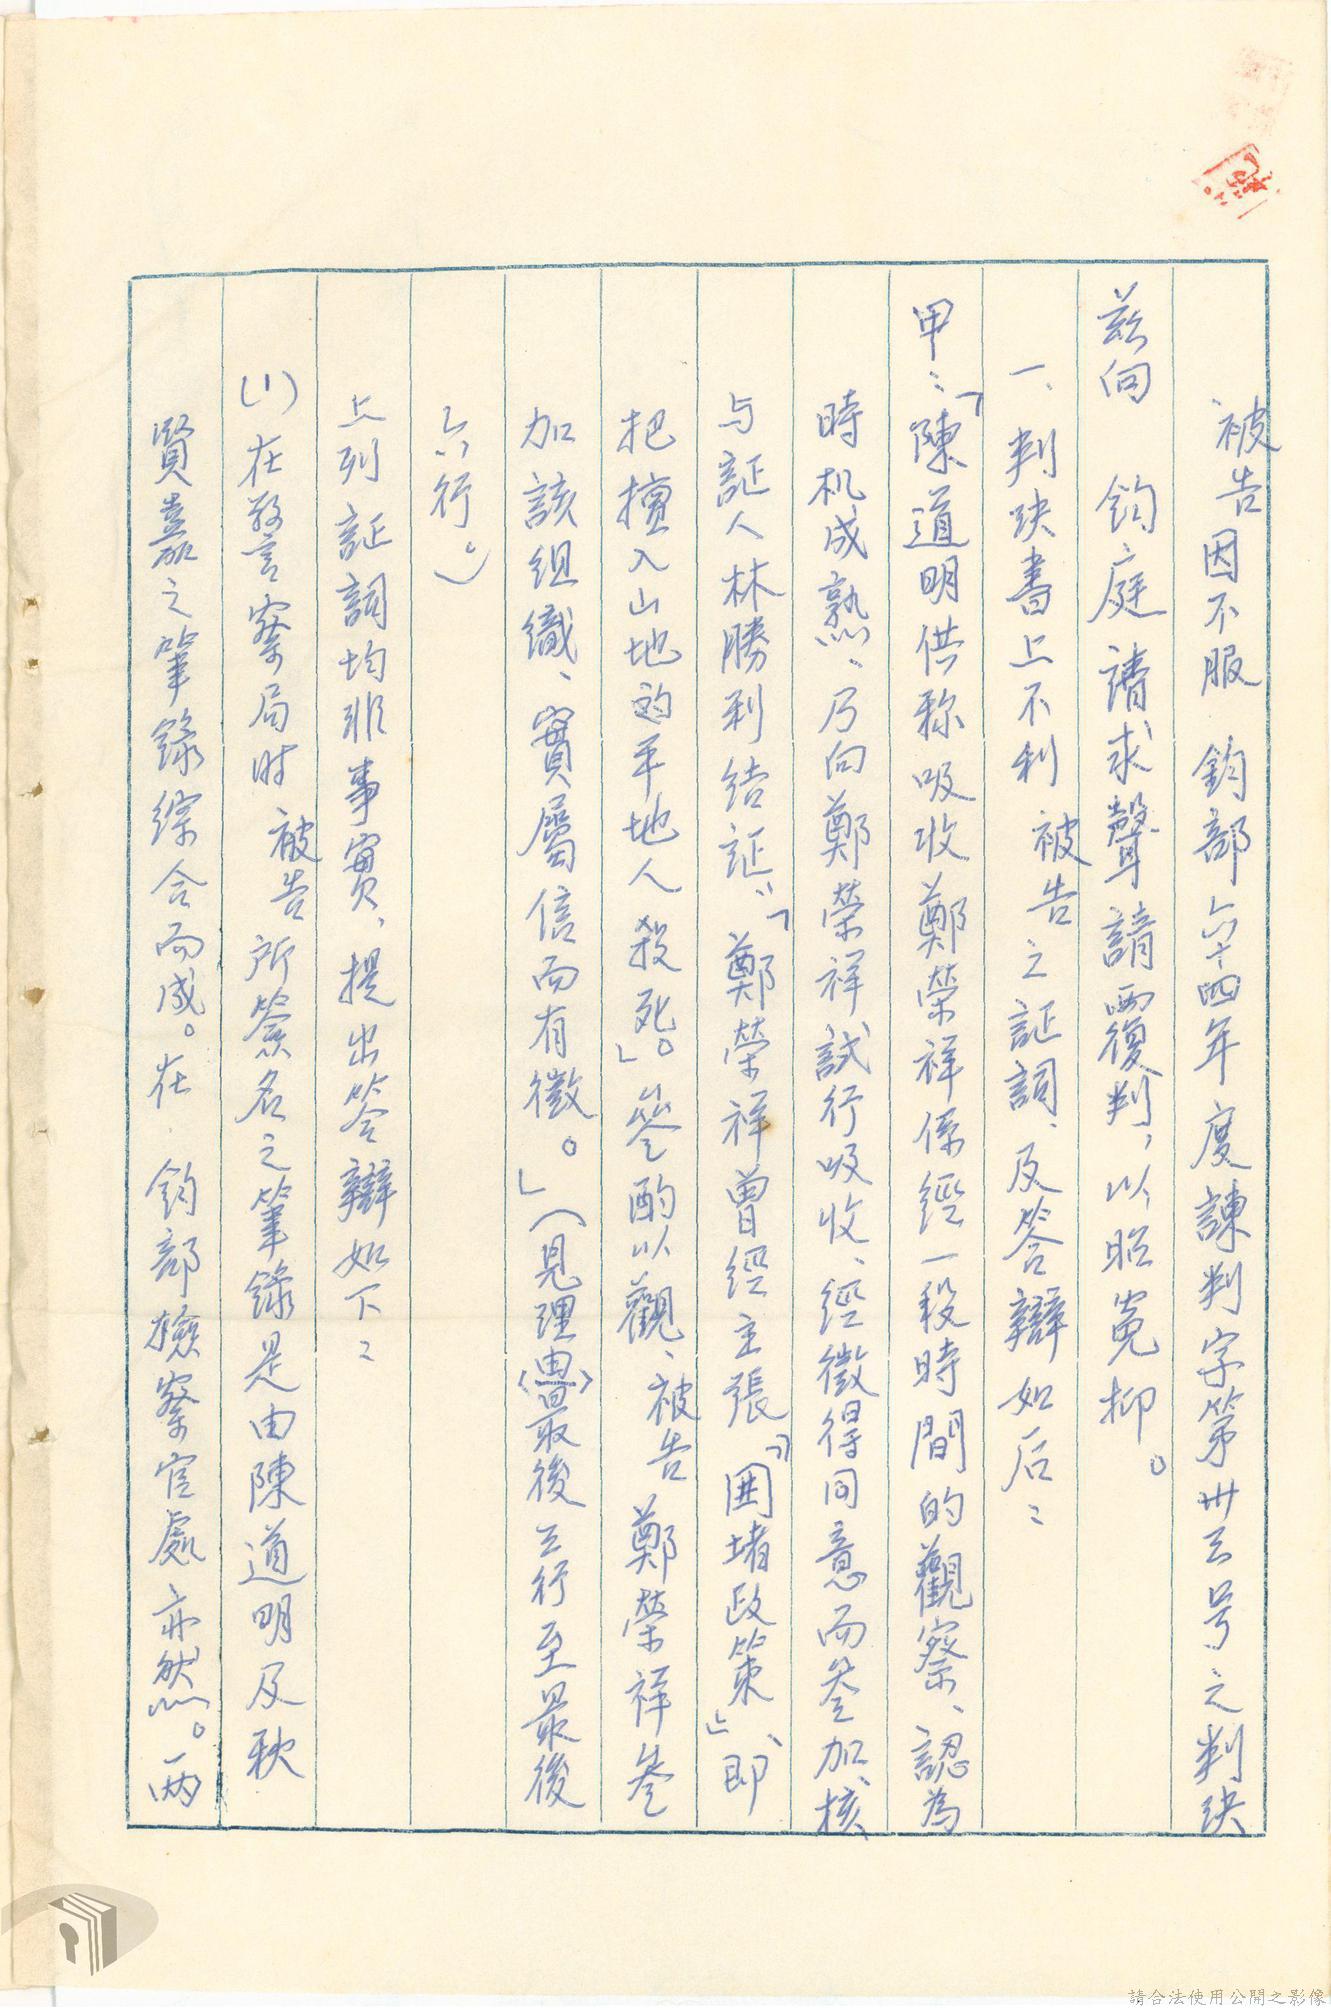 被告因不服　鈞部六十四年度諫判字第卅云号之判決
茲向　鈞庭請求聲請覆判，以昭寃抑。
一、判決書上不利被告之証詞、及答辯如后：
甲：「陳道明供称吸收鄭榮祥係經一段時間的觀察、認為
時机成熟、乃向鄭榮祥試行吸收、經徵得同意而參加、核
与証人林勝利结証：「鄭榮祥曾經主張『圍堵政策』、即
把擅入山地的平地人殺死。」參酌以觀、被告鄭榮祥參
加該组織、實屬信而有徵。」（見理由最後三行至最後
六行。）
上列証詞均非事實，提出答辯如下：
(1)在警察局时被告所簽名之筆錄是由陳道明及耿
賢嘉之筆錄綜合而成。在　鈞部檢察官處亦然。兩
請合法使用公開之影像